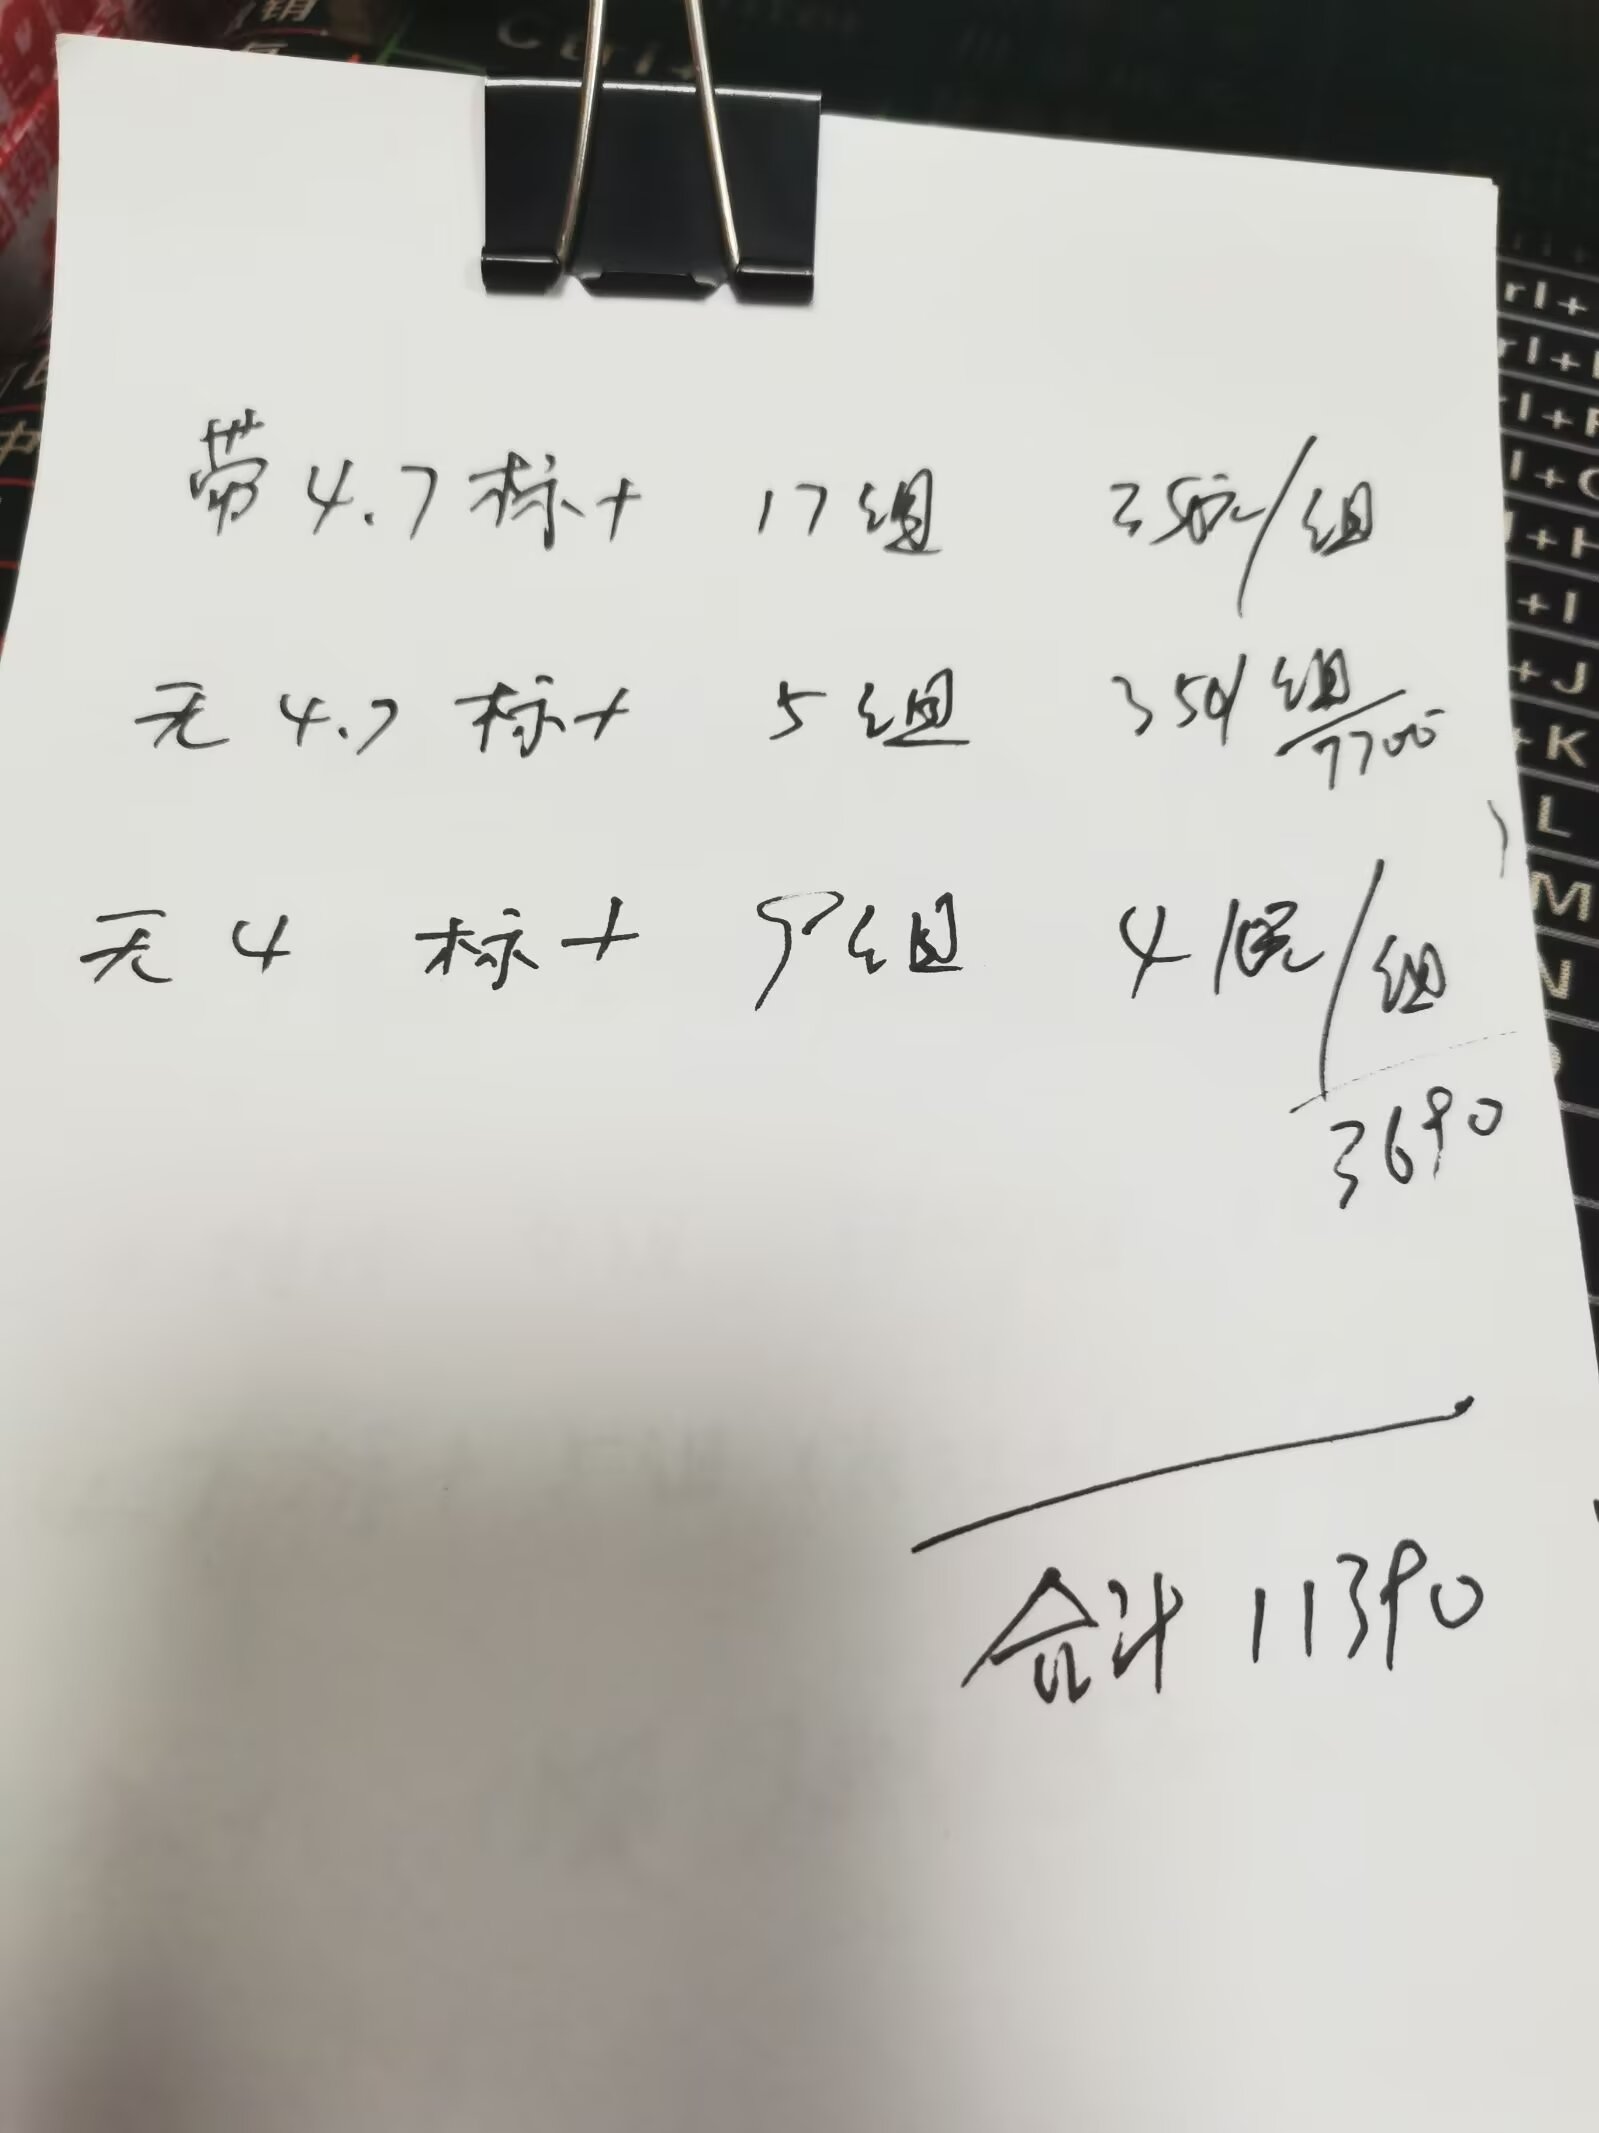 钥
Ctrl+
带 4.7 标+ 17组 350元/组
无 4.7 标+ 5组 350/组
7700
无 4 标+ 9组 410元/组
3690
合计 11390
rl+
rl+
rl+F
l+C
+H
+I
+J
+K
L
M
N